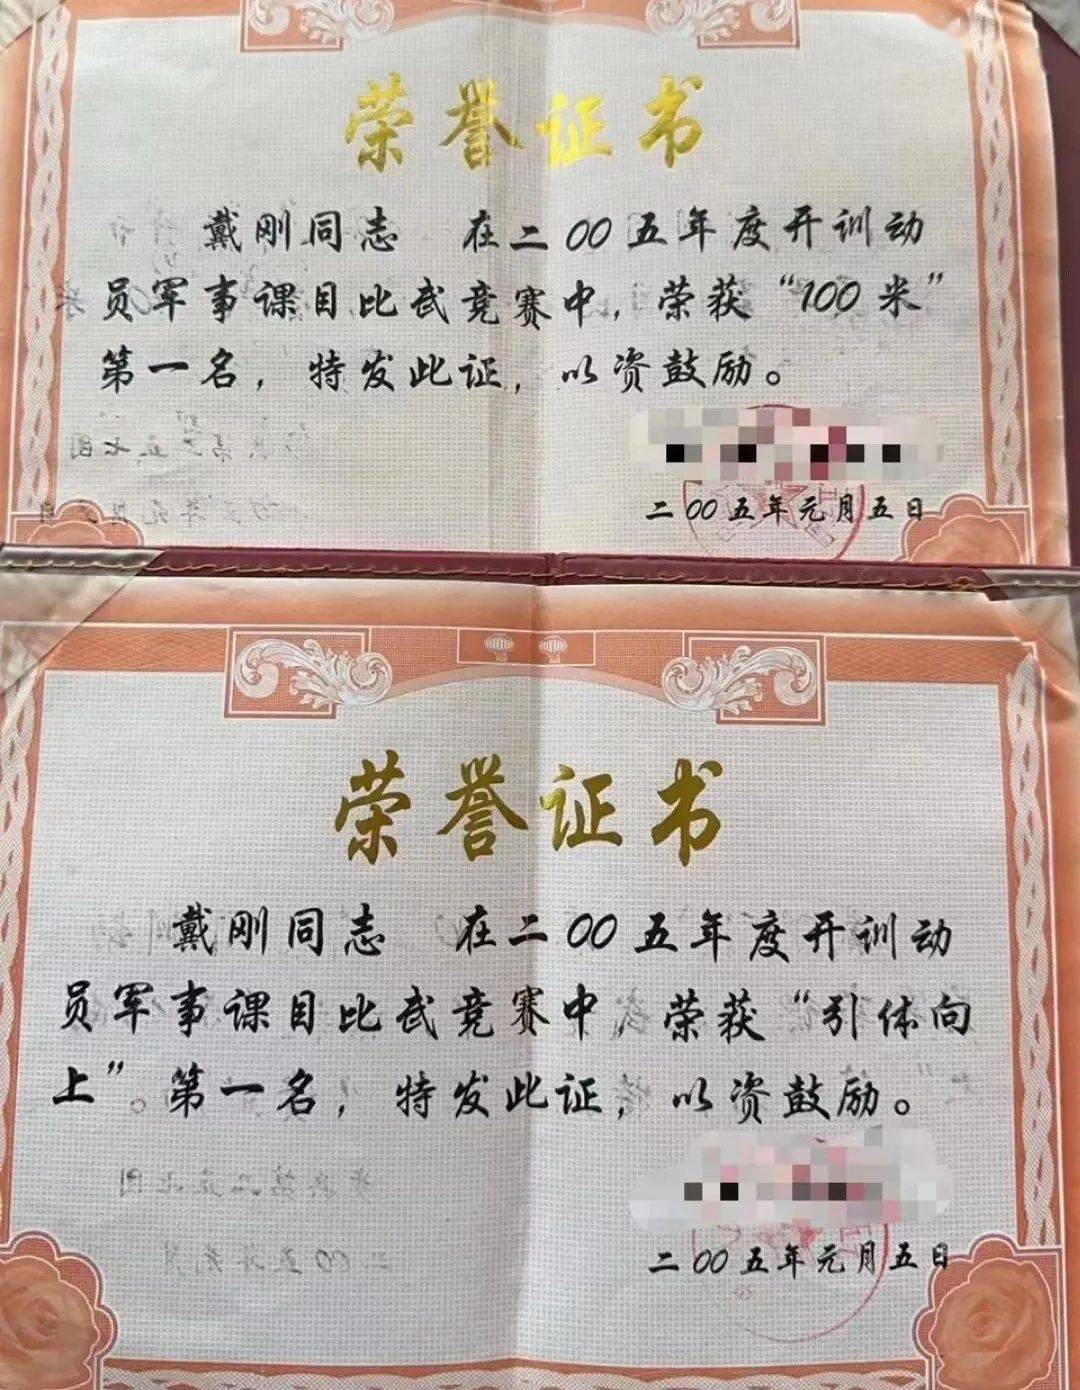 荣誉证书
戴刚同志 在二00五年度开训动
员军事课目比武竞赛中,荣获“100米”
第一名，特发此证，以资鼓励。
二00五年元月五日
荣誉证书
戴刚同志 在二00五年度开训动
员军事课目比武竞赛中,荣获“引体向
上”。第一名，特发此证，以资鼓励。
二00五年元月五日